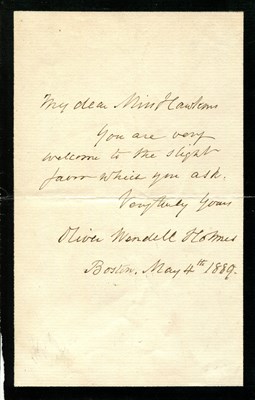 My dear Miss Hawkins
You are very
welcome to the slight
favor which you ask.
Very truly Yours
Oliver Wendell Holmes
Boston. May 4th 1889.